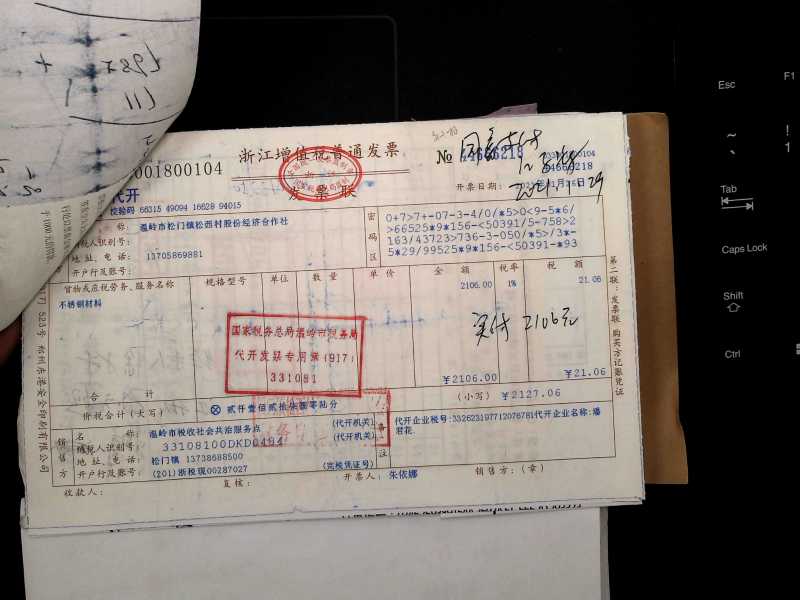 浙江增值税普通发票
发票联
001800104
No 44666218
44666218
代开
校验码 66315 49094 16628 94015
开票日期:
2021.1.29
温岭市松门镇松西村股份经济合作社
纳税人识别号:
地址、电话: 13705869881
开户行及账号:
密码区
0+7>7+-07-3-4/0/*5>0<9-5*6/
>66525*9*156-<50391/5-758>2
163/43723*736-3-050/*5>/3*-
5*29/99525*9*156-<50391-*93
货物或应税劳务、服务名称 规格型号 单位 数量 单价 金额 税率 税额
不锈钢材料 2106.00 1% 21.06
实付 2106元
国家税务总局温岭市税务局
代开发票专用章(917)
331081
合计 ¥2106.00 ¥21.06
价税合计(大写) ⊗ 贰仟壹佰贰拾柒圆零陆分 (小写) ¥2127.06
销售方
名称: 温岭市税收社会共治服务点 (代开机关)
纳税人识别号: 33108100DKD0494 (代开机关)
地址、电话: 松门镇 13738688500
开户行及账号: (201)浙税现00287027 (完税凭证号)
备注
代开企业税号:332623197712076781代开企业名称:潘
君花
收款人: 复核: 开票人: 朱依娜 销售方:(章)
第二联:发票联 购买方记账凭证
Esc
F1
~
!
1
Tab
Caps Lock
Shift
Ctrl